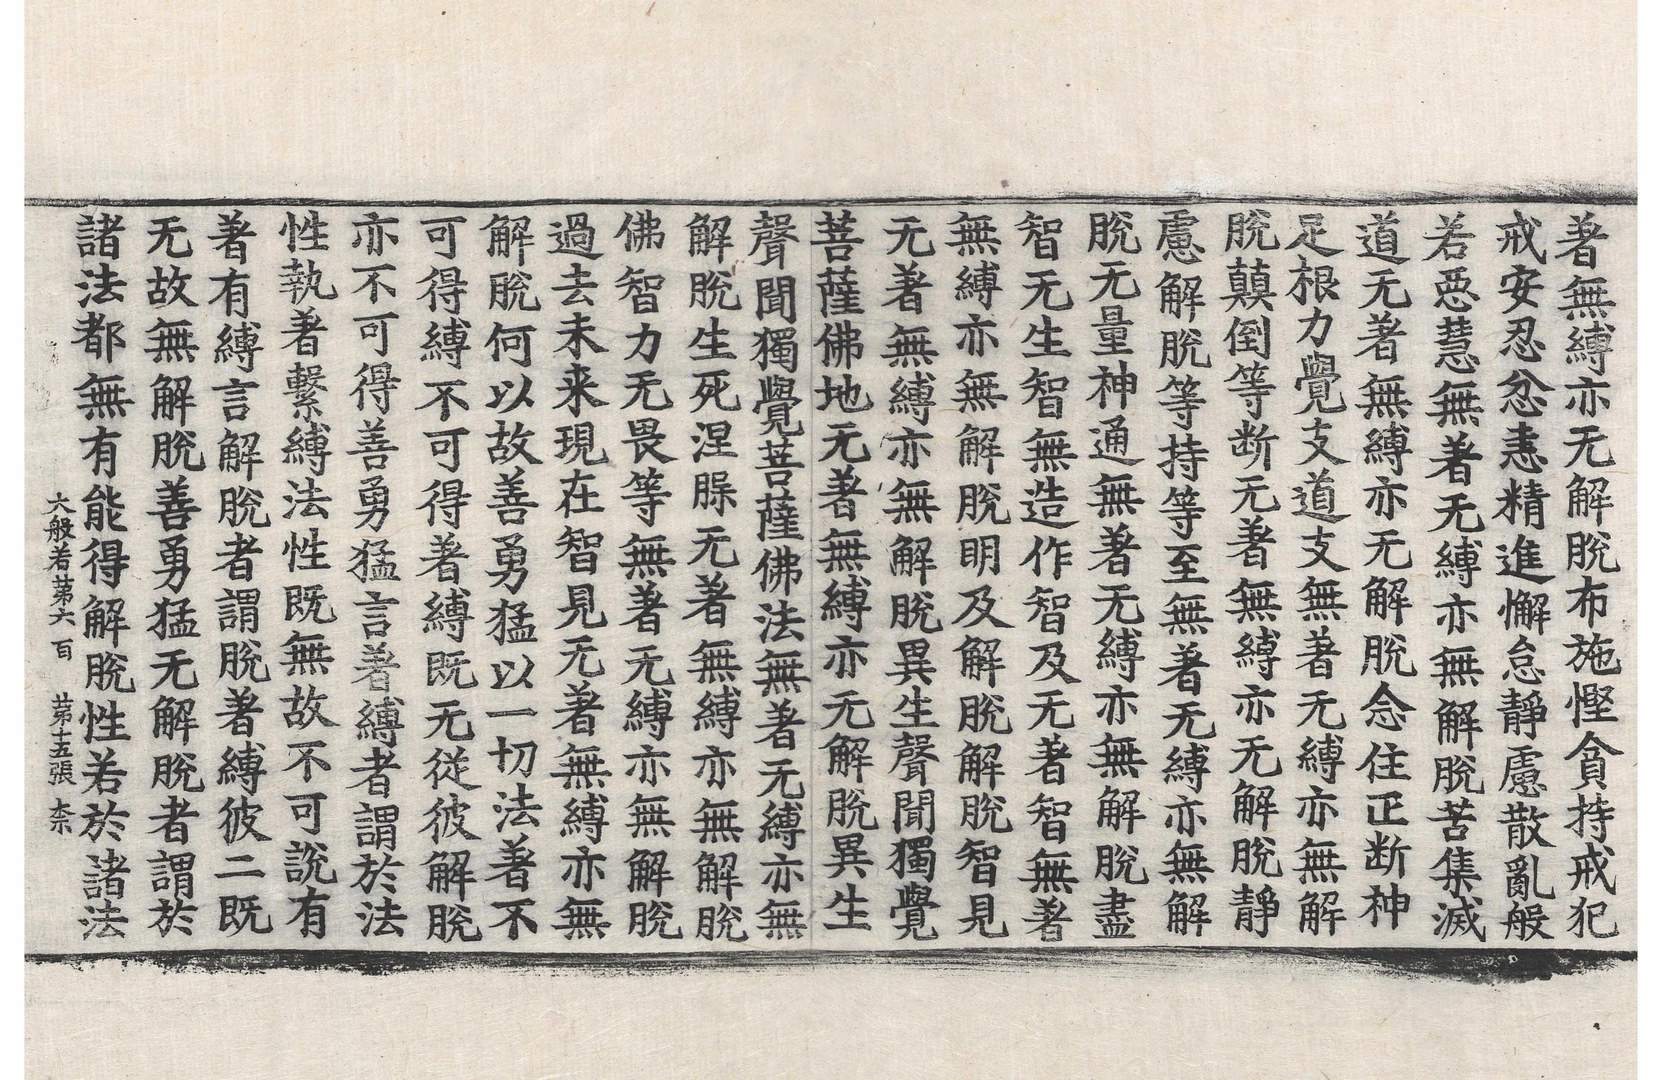 著無縛亦无解脫布施慳貪持戒犯
戒安忍忿恚精進懈怠靜慮散亂般
若惡慧無著无縛亦無解脫苦集滅
道无著無縛亦无解脫念住正断神
足根力覺支道支無著无縛亦無解
脫顚倒等断无著無縛亦无解脫靜
慮解脫等持等至無著无縛亦無解
脫无量神通無著无縛亦無解脫盡
智无生智無造作智及无著智無著
無縛亦無解脫明及解脫解脫智見
无著無縛亦無解脫異生聲聞獨覺
菩薩佛地无著無縛亦无解脫異生
聲聞獨覺菩薩佛法無著无縛亦無
解脫生死涅槃无著無縛亦無解脫
佛智力无畏等無著无縛亦無解脫
過去未来現在智見无著無縛亦無
解脫何以故善勇猛以一切法著不
可得縛不可得著縛既无從彼解脫
亦不可得善勇猛言著縛者謂於法
性執著繫縛法性既無故不可說有
著有縛言解脫者謂脫著縛彼二既
无故無解脫善勇猛无解脫者謂於
諸法都無有能得解脫性若於諸法
大般若苐六百 苐十五張 柰